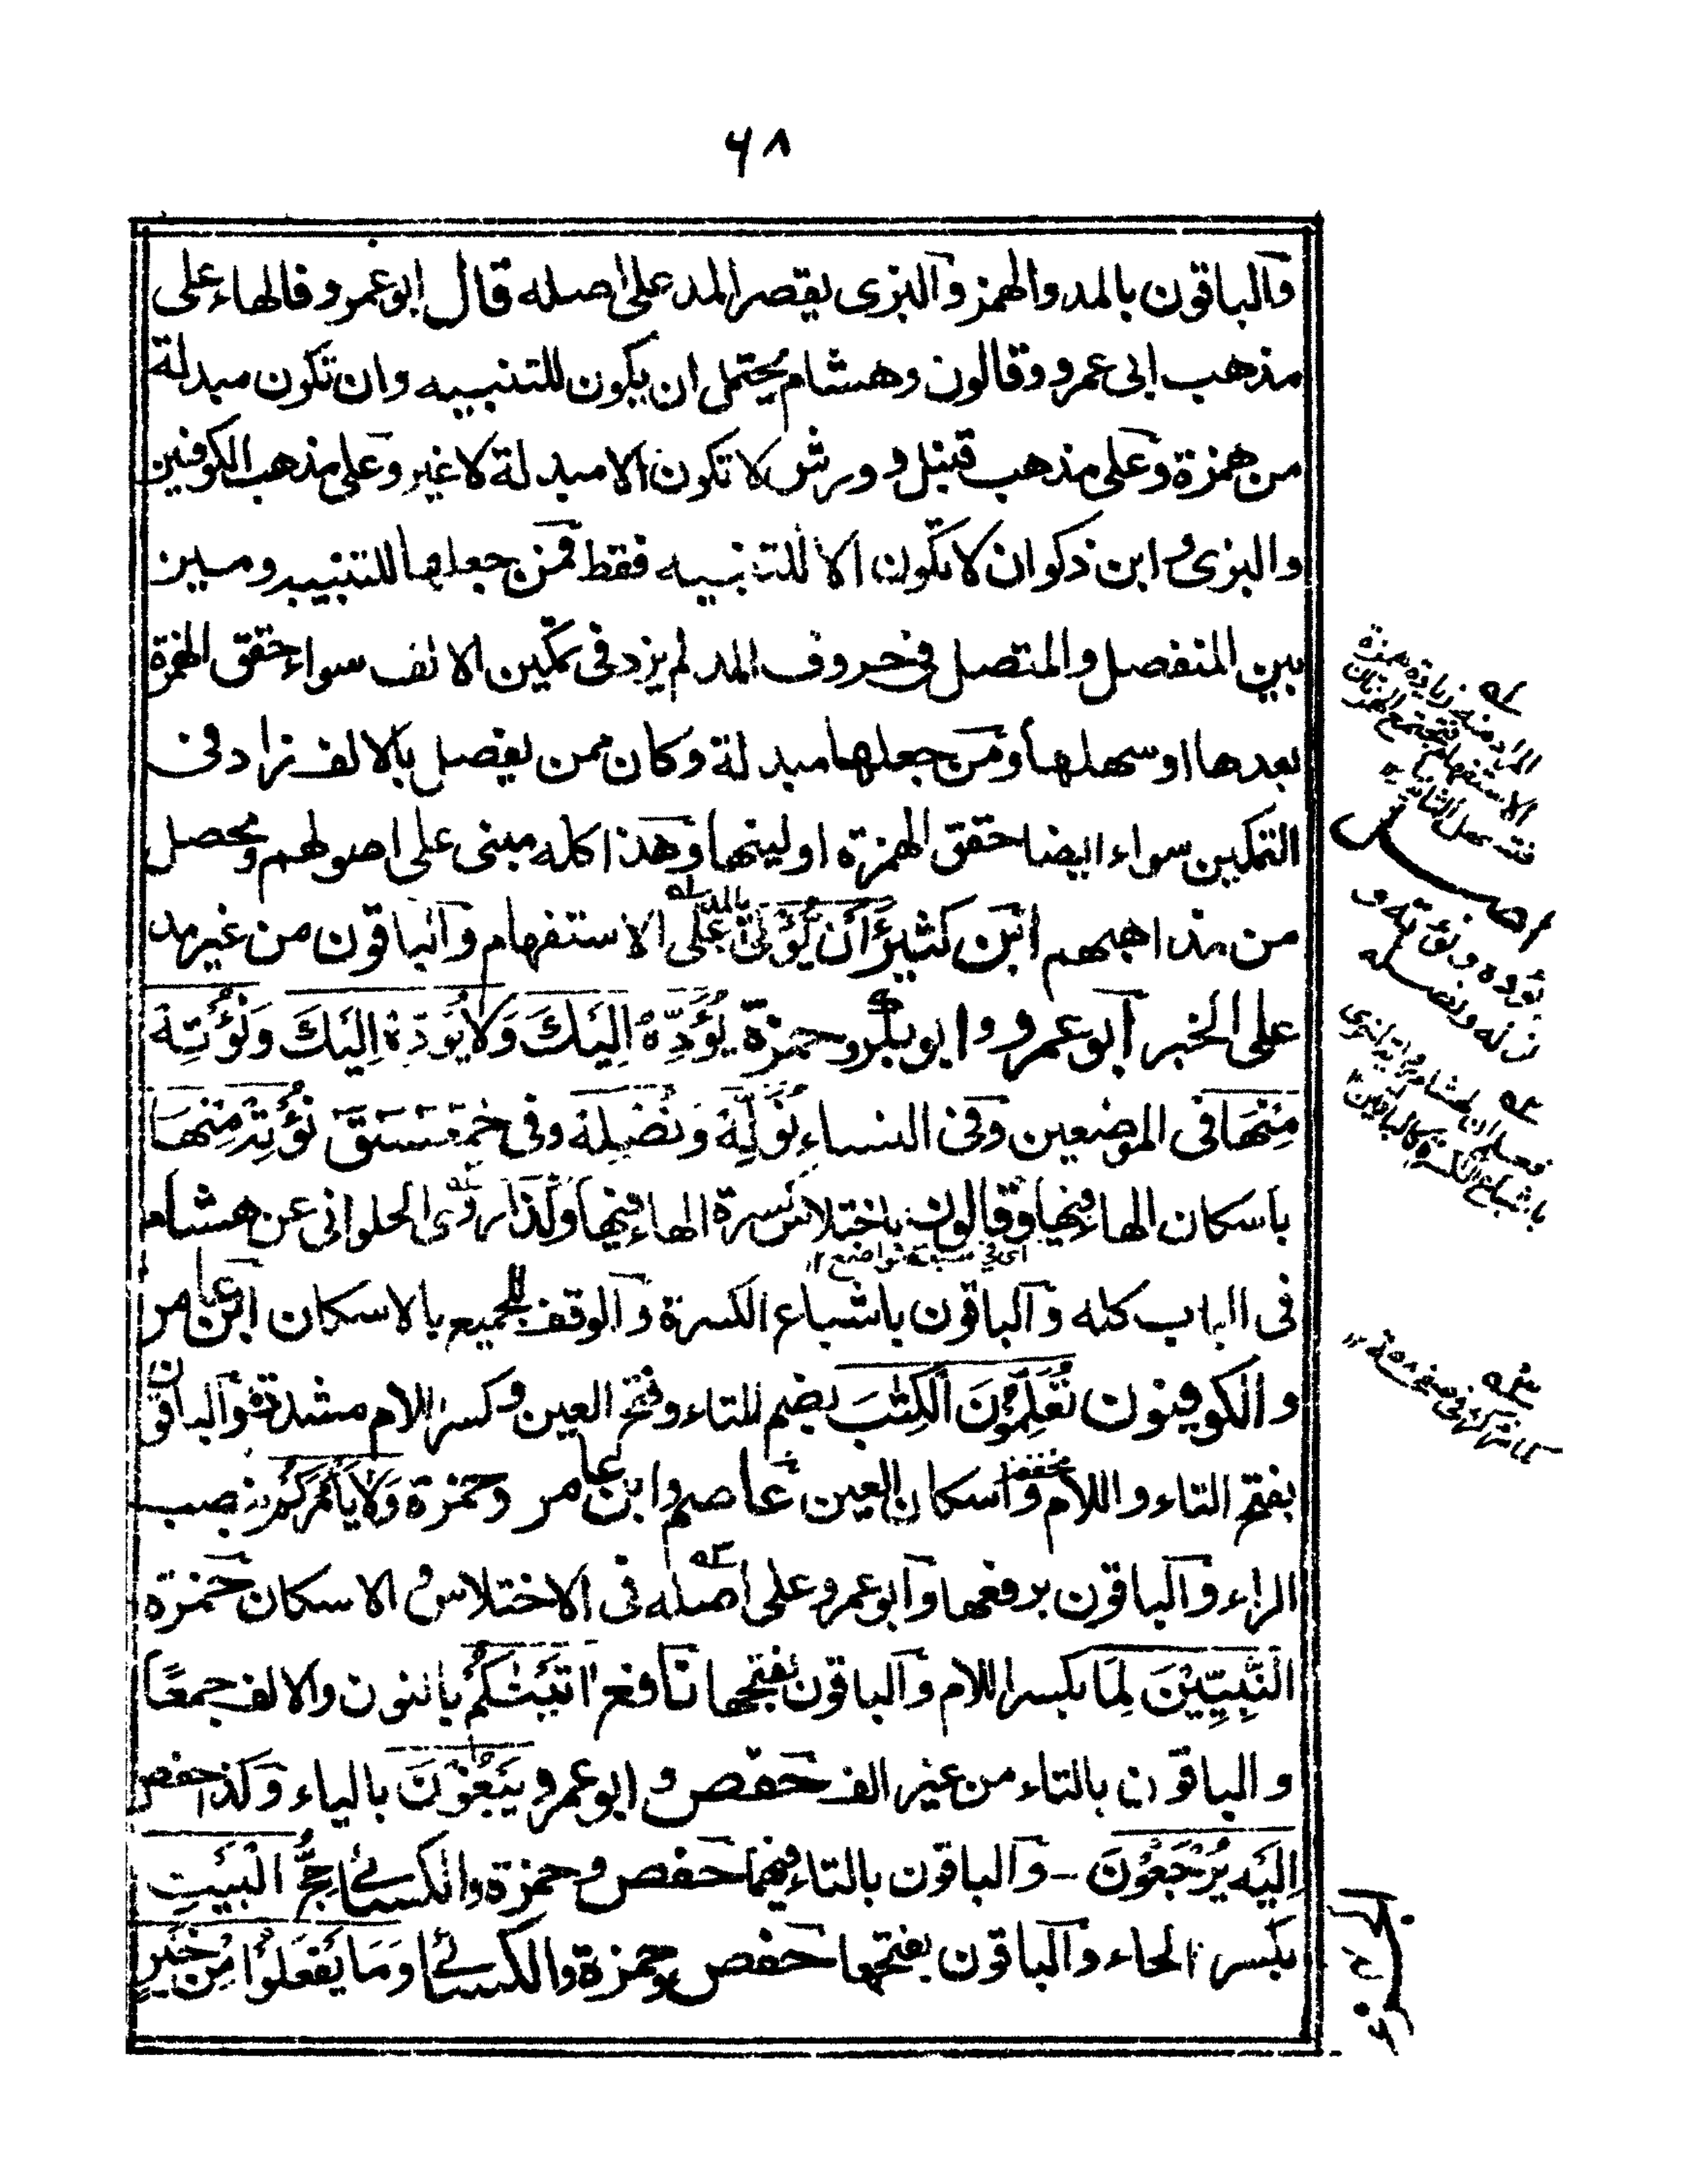 ٦٨
والباقون بالمد والهمز والبزى يقصر المد على اصله قال ابو عمرو فالهاء على
مذهب ابى عمرو وقالون وهشام يحتمل ان يكون للتنبيه وان تكون مبدلة
من همزة وعلى مذهب قنبل و ورش لا تكون الا مبدلة لا غير وعلى مذهب الكوفيين
والبزى و ابن ذكوان لا تكون الا للتنبيه فقط فمن جعلها للتنبيه وميز
بين المنفصل والمتصل فى حروف المد لم يزد فى تمكين الالف سواء حقق الهمزة
بعدها او سهلها ومن جعلها مبدلة وكان ممن يفصل بالالف زاد فى
التمكين سواء ايضا حقق الهمزة او لينها وهذا كله مبنى على اصولهم ومحصل
من مذاهبهم ابن كثير أَن يُّؤْتَىٰ بالمد على الاستفهام والباقون من غير مد
على الخبر ابو عمرو و ابو بكر وحمزة يُؤَدِّهْ اِلَيْكَ وَلَا يُؤَدِّهْ اِلَيْكَ وَنُؤْتِهْ
مِنْهَا فى الموضعين وفى النساء نُوَلِّهْ وَنُصْلِهْ وفى حٰمٓعٓسٓقٓ نُؤْتِهْ مِنْهَا
باسكان الهاء فيها وقالون باختلاس كسرة الهاء فيها وكذا روى الحلوانى عن هشام
اى فى سبعة مواضع ١٢
فى الباب كله والباقون باشباع الكسرة والوقف للجميع بالاسكان ابن عامر
والكوفيون تُعَلِّمُوْنَ الْكِتٰبَ بضم التاء وفتح العين وكسر اللام مشددة والباقون
بفتح التاء واللام مخففة واسكان العين عاصم وابن عامر وحمزة وَلَا يَأْمُرَكُمْ بنصب
الراء والباقون برفعها وابو عمرو على اصله فى الاختلاس و الاسكان حمزة
النَّبِيِّيْنَ لِمَا بكسر اللام والباقون بفتحها نافع اٰتَيْنٰكُمْ بالنون والالف جمعًا
والباقون بالتاء من غير الف حفص و ابو عمرو يَبْغُوْنَ بالياء وكذا حفص
اِلَيْهِ يُرْجَعُوْنَ - والباقون بالتاء فيهما حفص وحمزة والكسائى حِجُّ الْبَيْتِ
بكسر الحاء والباقون بفتحها حفص وحمزة والكسائى وَمَا يَفْعَلُوْا مِنْ خَيْرٍ
المراد منه زيادة همزة
الاستفهام فتجتمع الهمزتان
فقد سهل الثانية
يؤده ونؤته و
نوله ونصله